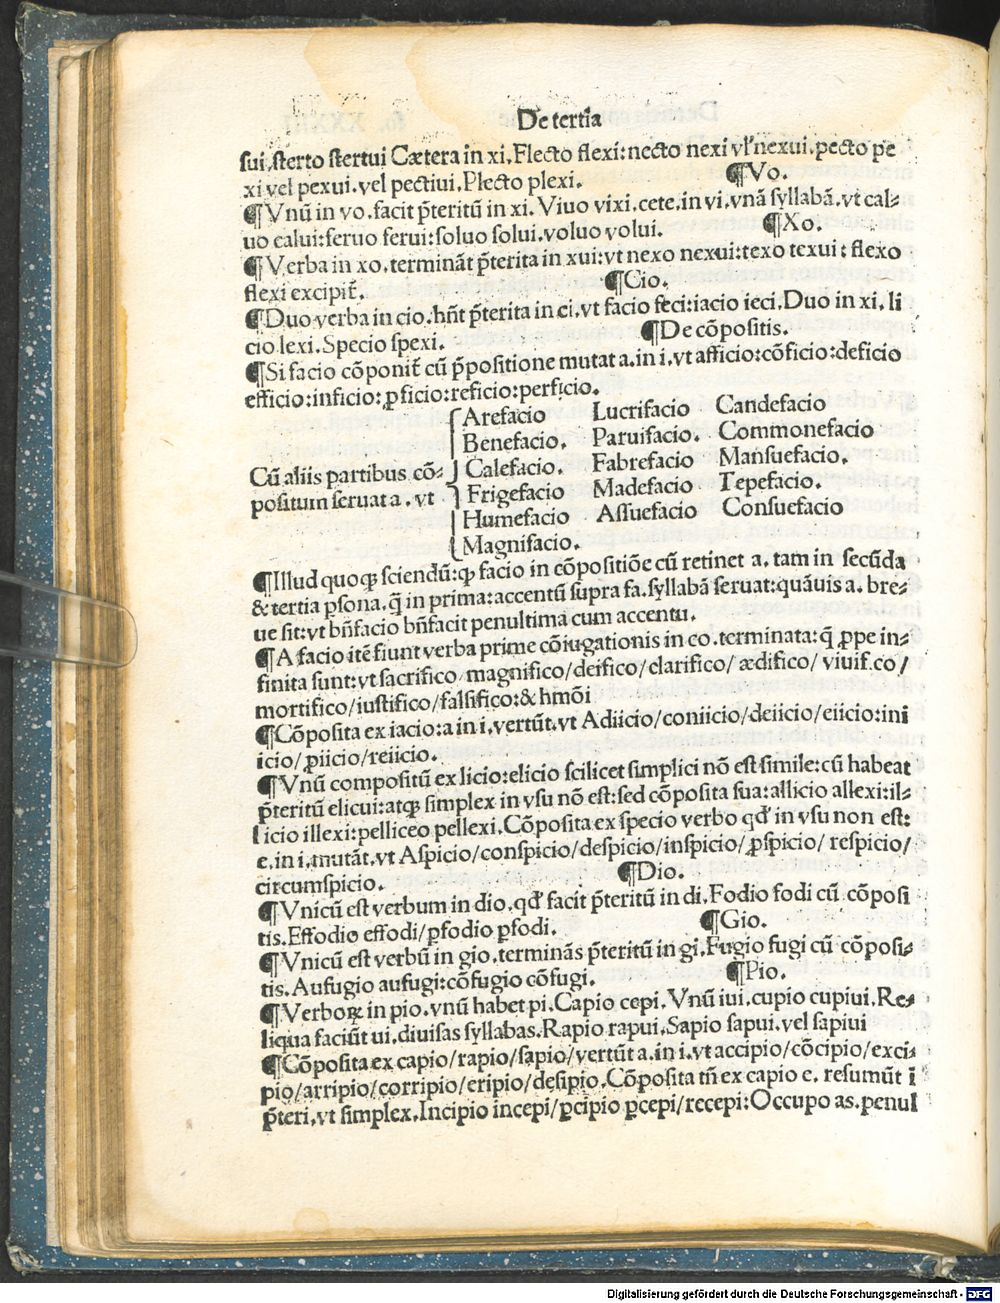 De tertia
sui, sterto stertui Cætera in xi. Flecto flexi: necto nexi vl' nexui. pecto pe
xi vel pexui. vel pectiui. Plecto plexi. ¶Vo.
¶Vnū in vo. facit p̄teritū in xi. Viuo vixi. cete. in vi. vnā syllabā. vt cal-
uo calui: feruo ferui: soluo solui. voluo volui. ¶Xo.
¶Verba in xo. termināt p̄terita in xui: vt nexo nexui: texo texui: flexo
flexi excipit᷑. ¶Cio.
¶Duo verba in cio. hn̄t p̄terita in ci. vt facio feci: iacio ieci. Duo in xi. li
cio lexi. Specio spexi. ¶De cōpositis.
¶Si facio cōponit᷑ cū p̄positione mutat a. in i. vt afficio: cōficio: deficio
efficio: inficio: ꝓficio: reficio: perficio.
Arefacio Lucrifacio Candefacio
Benefacio. Paruifacio. Commonefacio
Cū aliis partibus cō- Calefacio. Fabrefacio Mansuefacio.
positum seruat a. vt Frigefacio Madefacio Tepefacio.
Humefacio Assuefacio Consuefacio
Magnifacio.
¶Illud quoqꝫ sciendū: ꝙ facio in cōpositiōe cū retinet a. tam in secūda
& tertia ꝑsona. q̄ in prima: accentū supra fa. syllabā seruat: quāuis a. bre-
ue sit: vt bn̄facio bn̄facit penultima cum accentu.
¶A facio itē fiunt verba prime cōiugationis in co. terminata: q̄ ꝓpe in-
finita sunt: vt sacrifico magnifico/ deifico/ clarifico/ ædifico/ viuif.co/
mortifico/ iustifico/ falsifico: & hmōi
¶Cōposita ex iacio: a in i. vertūt. vt Adiicio/ coniicio/ deiicio/ eiicio: ini
icio/ ꝓiicio/ reiicio.
¶Vnū compositū ex licio: elicio scilicet simplici nō est simile: cū habeat
p̄teritū elicui: atqꝫ simplex in vsu nō est: sed cōposita sua: allicio allexi: il-
licio illexi: pelliceo pellexi. Cōposita ex specio verbo qd' in vsu non est:
e. in i. mutāt. vt Aspicio/ conspicio/ despicio/ inspicio/ ꝓspicio/ respicio/
circumspicio. ¶Dio.
¶Vnicū est verbum in dio. qd' facit p̄teritū in di. Fodio fodi cū cōposi
tis. Effodio effodi/ ꝑfodio ꝑfodi. ¶Gio.
¶Vnicū est verbū in gio. terminās p̄teritū in gi. Fugio fugi cū cōposi-
tis. Aufugio aufugi: cōfugio cōfugi. ¶Pio.
¶Verboꝝ in pio. vnū habet pi. Capio cepi. Vnū iui. cupio cupiui. Re-
liqua faciūt ui. diuisas syllabas. Rapio rapui. Sapio sapui. vel sapiui
¶Cōposita ex capio/ rapio/ sapio/ vertūt a. in i. vt accipio/ cōcipio/ exci-
pio/ arripio/ corripio/ eripio/ desipio. Cōposita tn̄ ex capio e. resumūt ī
p̄teri. vt simplex. Incipio incepi/ ꝑcipio ꝑcepi/ recepi: Occupo as. penul
Digitalisierung gefördert durch die Deutsche Forschungsgemeinschaft - DFG